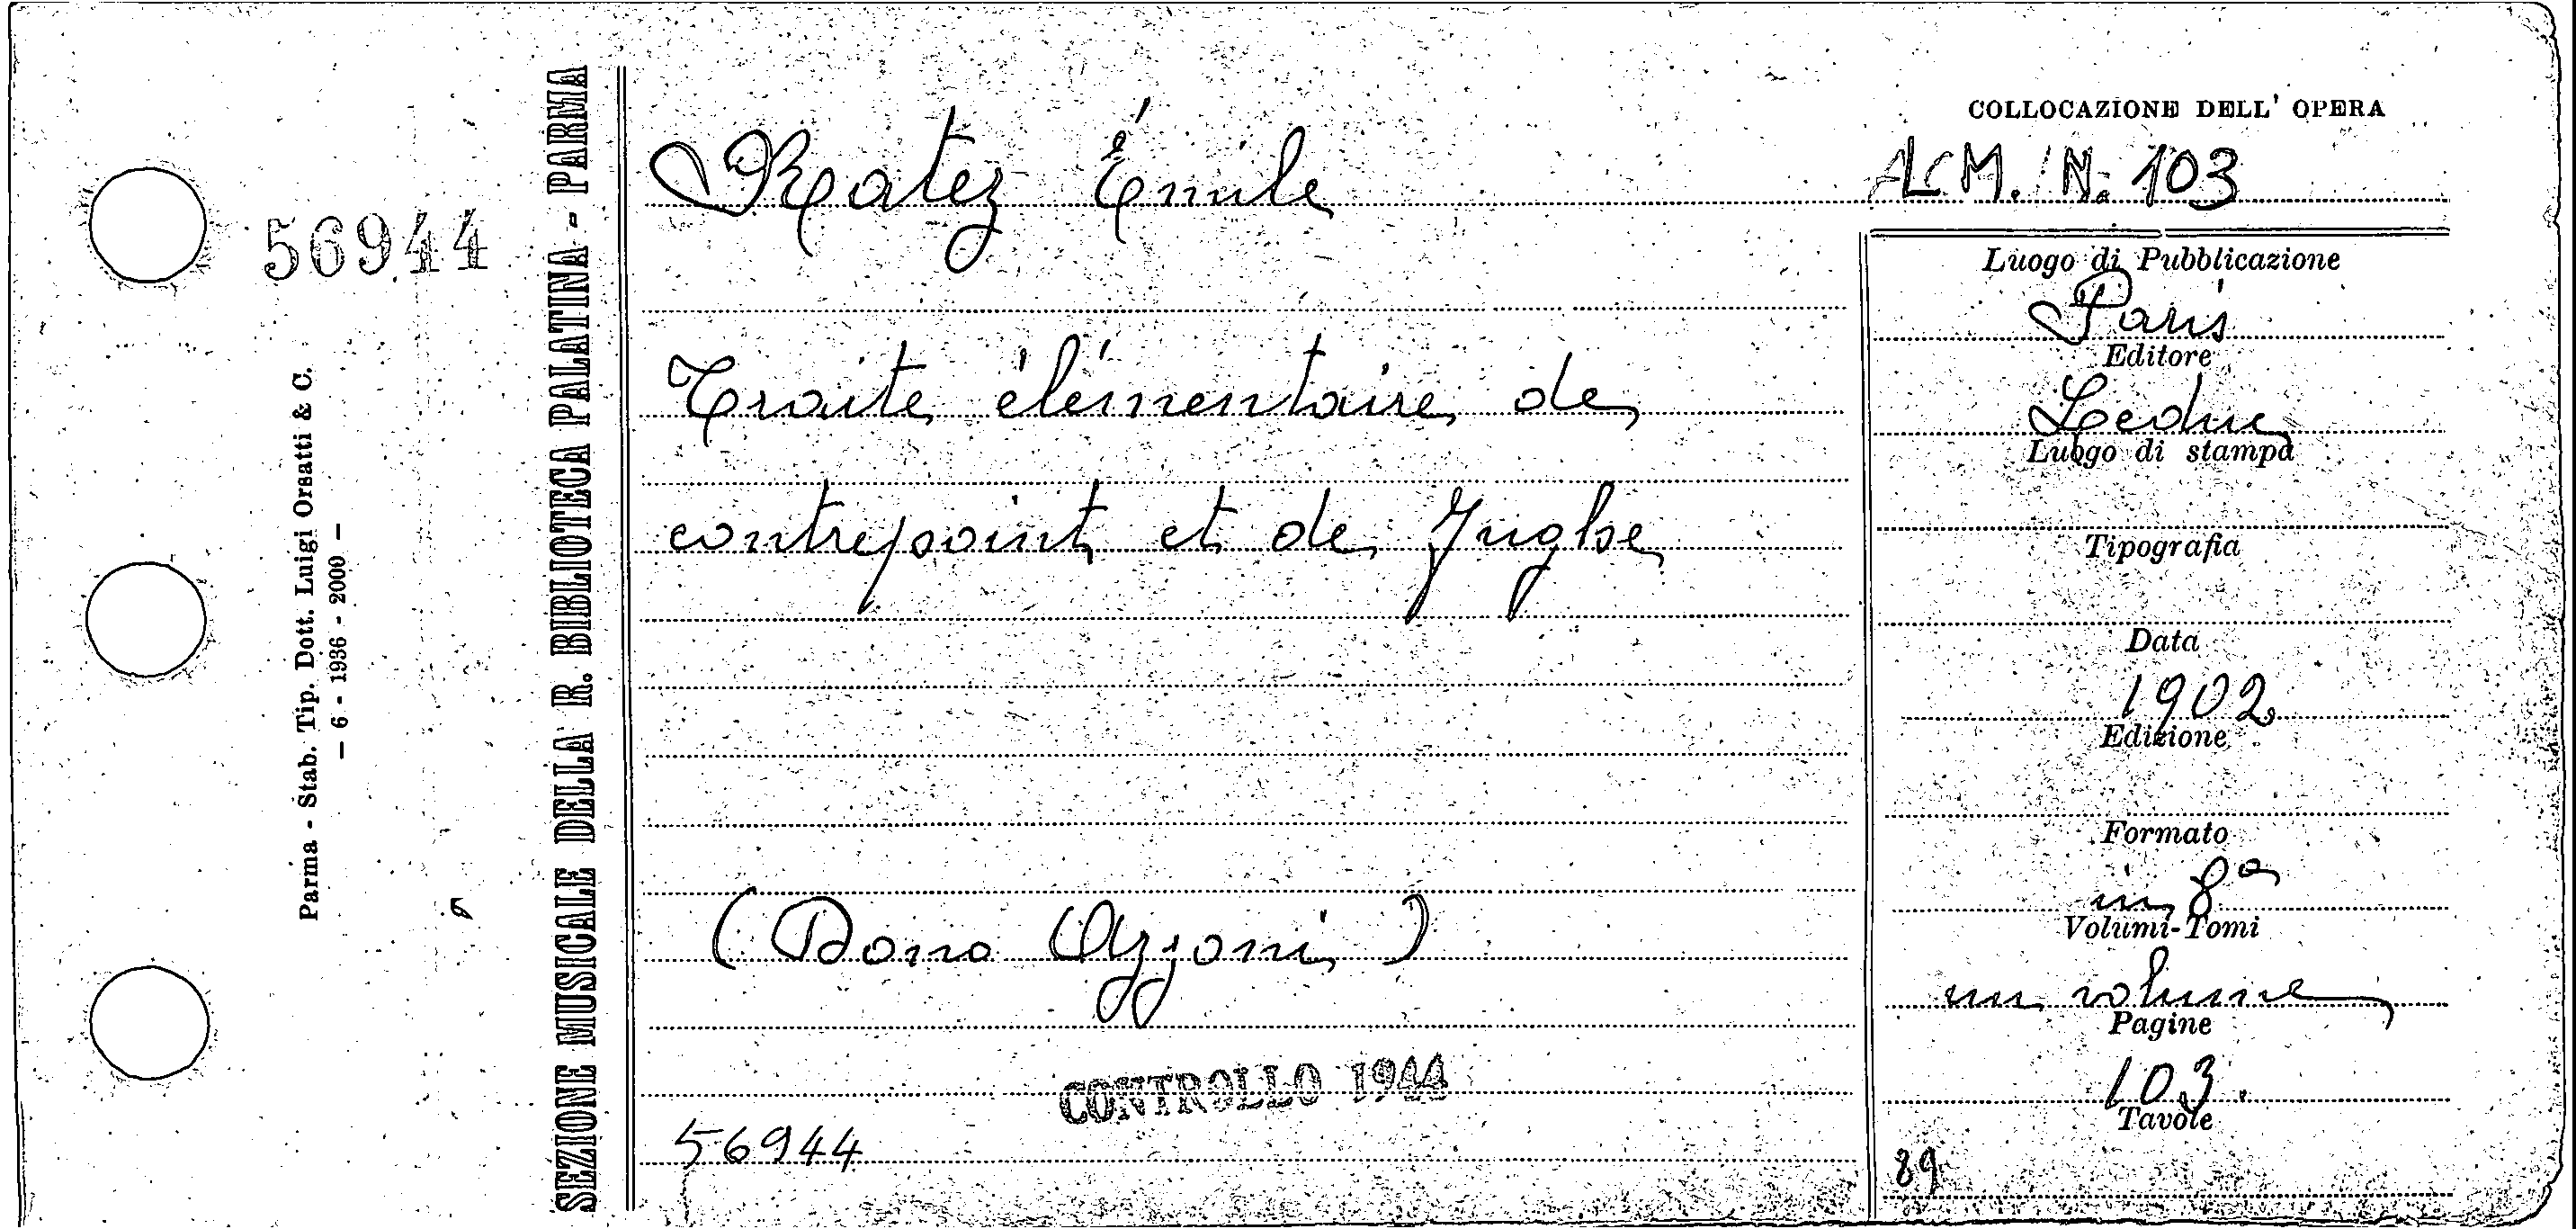 COLLOCAZIONE DELL' OPERA
Ratez Émile
M. N. 103
56944
Parma - Stab. Tip. Dott. Luigi Orsatti & C.
— 6 - 1936 - 2000 —
SEZIONE MUSICALE DELLA R. BIBLIOTECA PALATINA - PARMA
Traite élémentaire de
contrepoint et de Fughe
(Dono Azzoni)
CONTROLLO 1944
56944
Luogo di Pubblicazione
Paris
Editore
Leduc
Luogo di stampa
Tipografia
Data
1902
Edizione
Formato
in 8º
Volumi-Tomi
un volume
Pagine
103.
Tavole
89